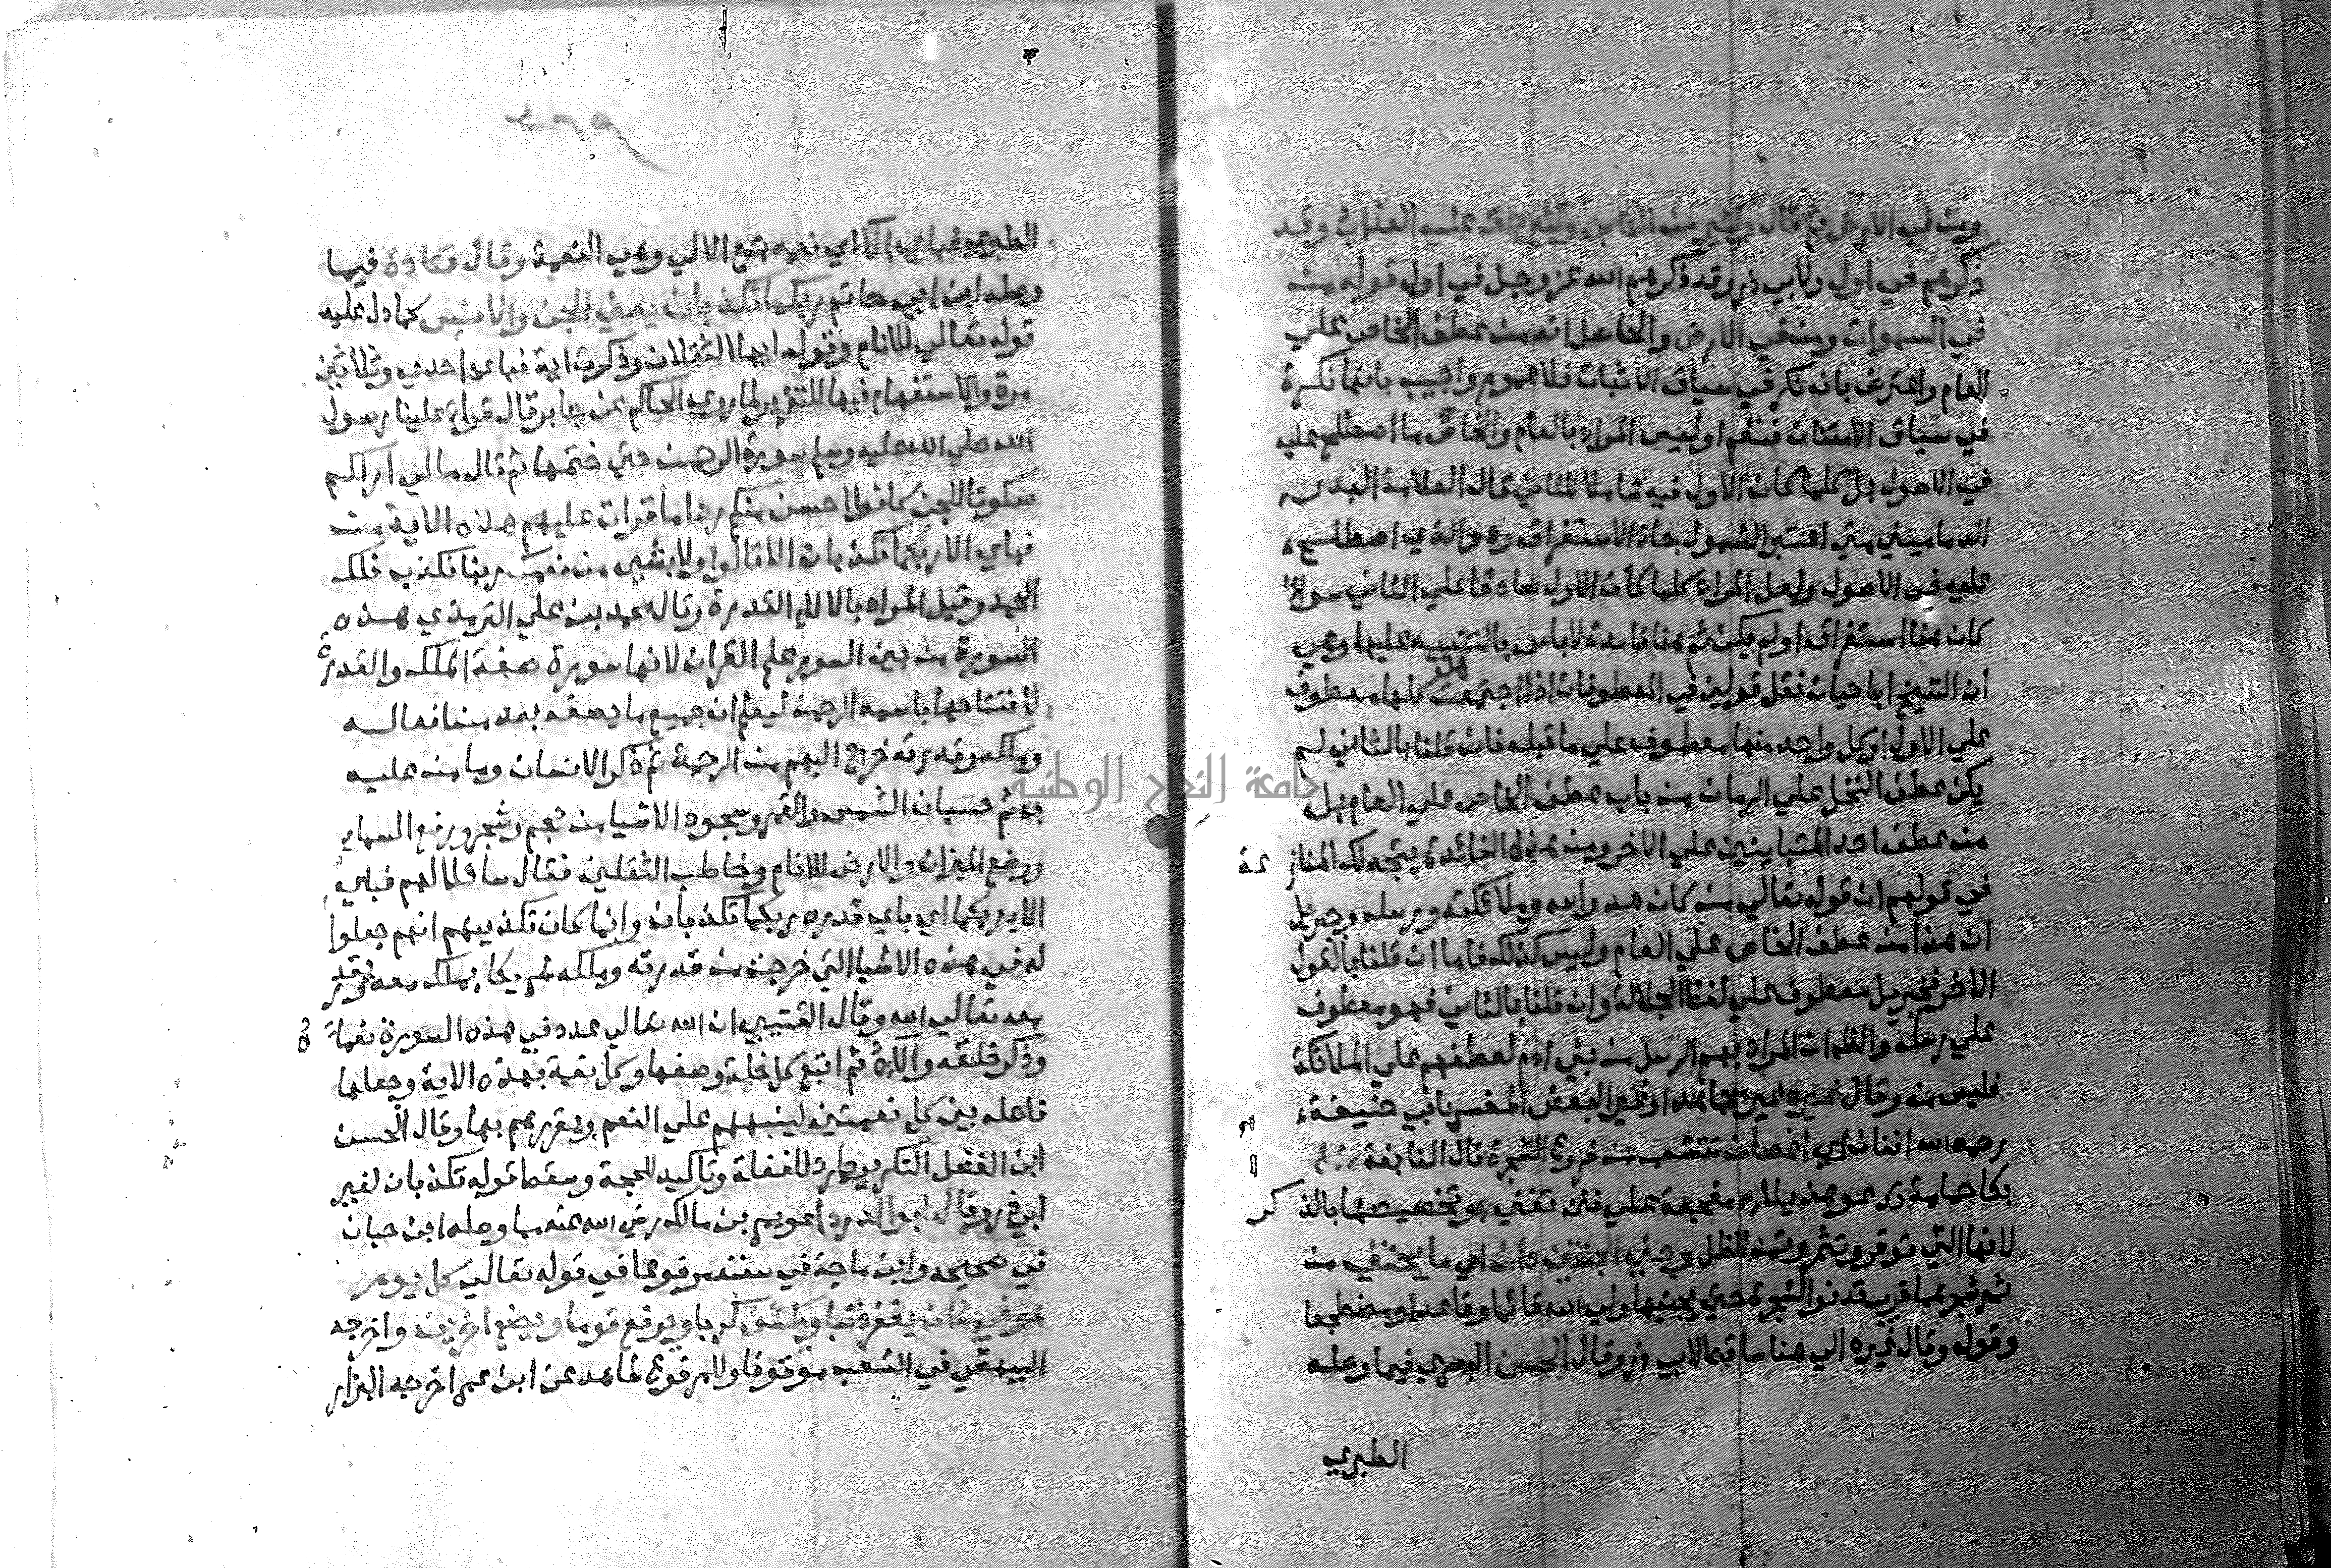 ومن في الارض ثم قال وكثير من الناس وكثير حق عليه العذاب وقد
ذكرهم في اول ولابي ذر وقد ذكرهم الله عز وجل في اول قوله من
في السموات ومن في الارض والحاصل انه من عطف الخاص على
العام واعترض بانه نكرة في سياق الاثبات فلا عموم واجيب بانها نكرة
في سياق الامتنان فتعم او ليس المراد بالعام والخاص ما اصطلح عليه
في الاصول بل كلما كان الاول فيه شاملا للثاني قال العلامة البدر
الدماميني متى اعتبر الشمول جاء الاستغراق وهو الذي اصطلح
عليه في الاصول ولعل المراد كلما كان الاول صادقا على الثاني سواء
كان هنا استغراق او لم يكن ثم هنا فائدة لا باس بالتنبيه عليها وهي
ان الشيخ ابا حيان نقل قولين في المعطوفات اذا اجتمعت هل كلها معطوف
على الاول او كل واحد منها معطوف على ما قبله فان قلنا بالثاني لم
يكن عطف النخل على الرمان من باب عطف الخاص على العام بل
من عطف احد المتباينين على الاخر ومن هذه الفائدة يتجه لك المنازعة
في قولهم ان قوله تعالى من كان عدوا لله وملائكته ورسله وجبريل
ان هذا من عطف الخاص على العام وليس كذلك فاما ان قلنا بالقول
الاخر فجبريل معطوف على لفظ الجلالة وان قلنا بالثاني فهو معطوف
على رسله والظاهر ان المراد بهم الرسل من بني ادم لعطفهم على الملائكة
فليس منه وقال غيره غير مجاهد او غير البعض المفسر بابي حنيفة
رحمه الله افنان اي اغصان تتشعب من فروع الشجرة قال النابغة
بكا حمامة تدعو هديلا مفجعة على فنن تغني وتخصيصها بالذكر
لانها التي تورق وتثمر وتمد الظل وجنى الجنتين دان اي ما يجتنى من
ثمر شجرهما قريب تدنو الشجرة حتى يجتنيها ولي الله قائما وقاعدا ومضطجعا
وقوله وقال غيره الى هنا ساقط لابي ذر وقال الحسن البصري فيما وصله
الطبري
الطبري فباي الآ اي نعمه جمع الالى وهي النعمة وقال قتادة فيما
وصله ابن ابي حاتم ربكما تكذبان يعني الجن والانس كما دل عليه
قوله تعالى للانام وقوله ايها الثقلان وذكرت اية فباي احدى وثلاثين
مرة والاستفهام فيها للتقرير لما روى الحاكم عن جابر قال قرا علينا رسول
الله صلى الله عليه وسلم سورة الرحمن حتى ختمها ثم قال ما لي اراكم
سكوتا للجن كانوا احسن منكم ردا ما قرات عليهم هذه الاية من
فباي الا ربكما تكذبان الا قالوا ولا بشيء من نعمك ربنا نكذب فلك
الحمد وقيل المراد بالالاء القدرة وقال محمد بن علي الترمذي هذه
السورة من بين السور علم القران لانها سورة صفة الملك والقدرة
لافتتاحها باسمه الرحمن ليعلم ان جميع ما يصفه بعد من افعاله
وملكه وقدرته خرج اليهم من الرحمة ثم ذكر الانسان وما من عليه
به ثم حسبان الشمس والقمر وسجود الاشيا من نجم وشجر ورفع السماء
ووضع الميزان والارض للانام وخاطب الثقلين فقال سائلا لهم فباي
الاء ربكما اي باي قدرة ربكما تكذبان وانما كان تكذيبهم انهم جعلوا
له في هذه الاشيا التي خرجت من قدرته وملكه شريكا يملك معه ويقدر
معه تعالى الله وقال القتيبي ان الله تعالى عدد في هذه السورة نعماءه
وذكر خلقه والآءه ثم اتبع كل خلة وصفها وكل نعمة بهذه الاية وجعلها
فاصلة بين كل نعمتين لينبههم على النعم ويقررهم بها وقال الحسين
ابن الفضل التكرير طرد للغفلة وتاكيد للحجة وسقط قوله تكذبان لغير
ابي ذر وقال ابو الدرداء عويمر بن مالك رضي الله عنه مما وصله ابن حبان
في صحيحه وابن ماجة في سننه مرفوعا في قوله تعالى كل يوم
هو في شان يغفر ذنبا ويكشف كربا ويرفع قوما ويضع اخرين واخرجه
البيهقي في الشعب موقوفا وللمرفوع شاهد عن ابن عمر اخرجه البزار
جامعة النجاح الوطنية